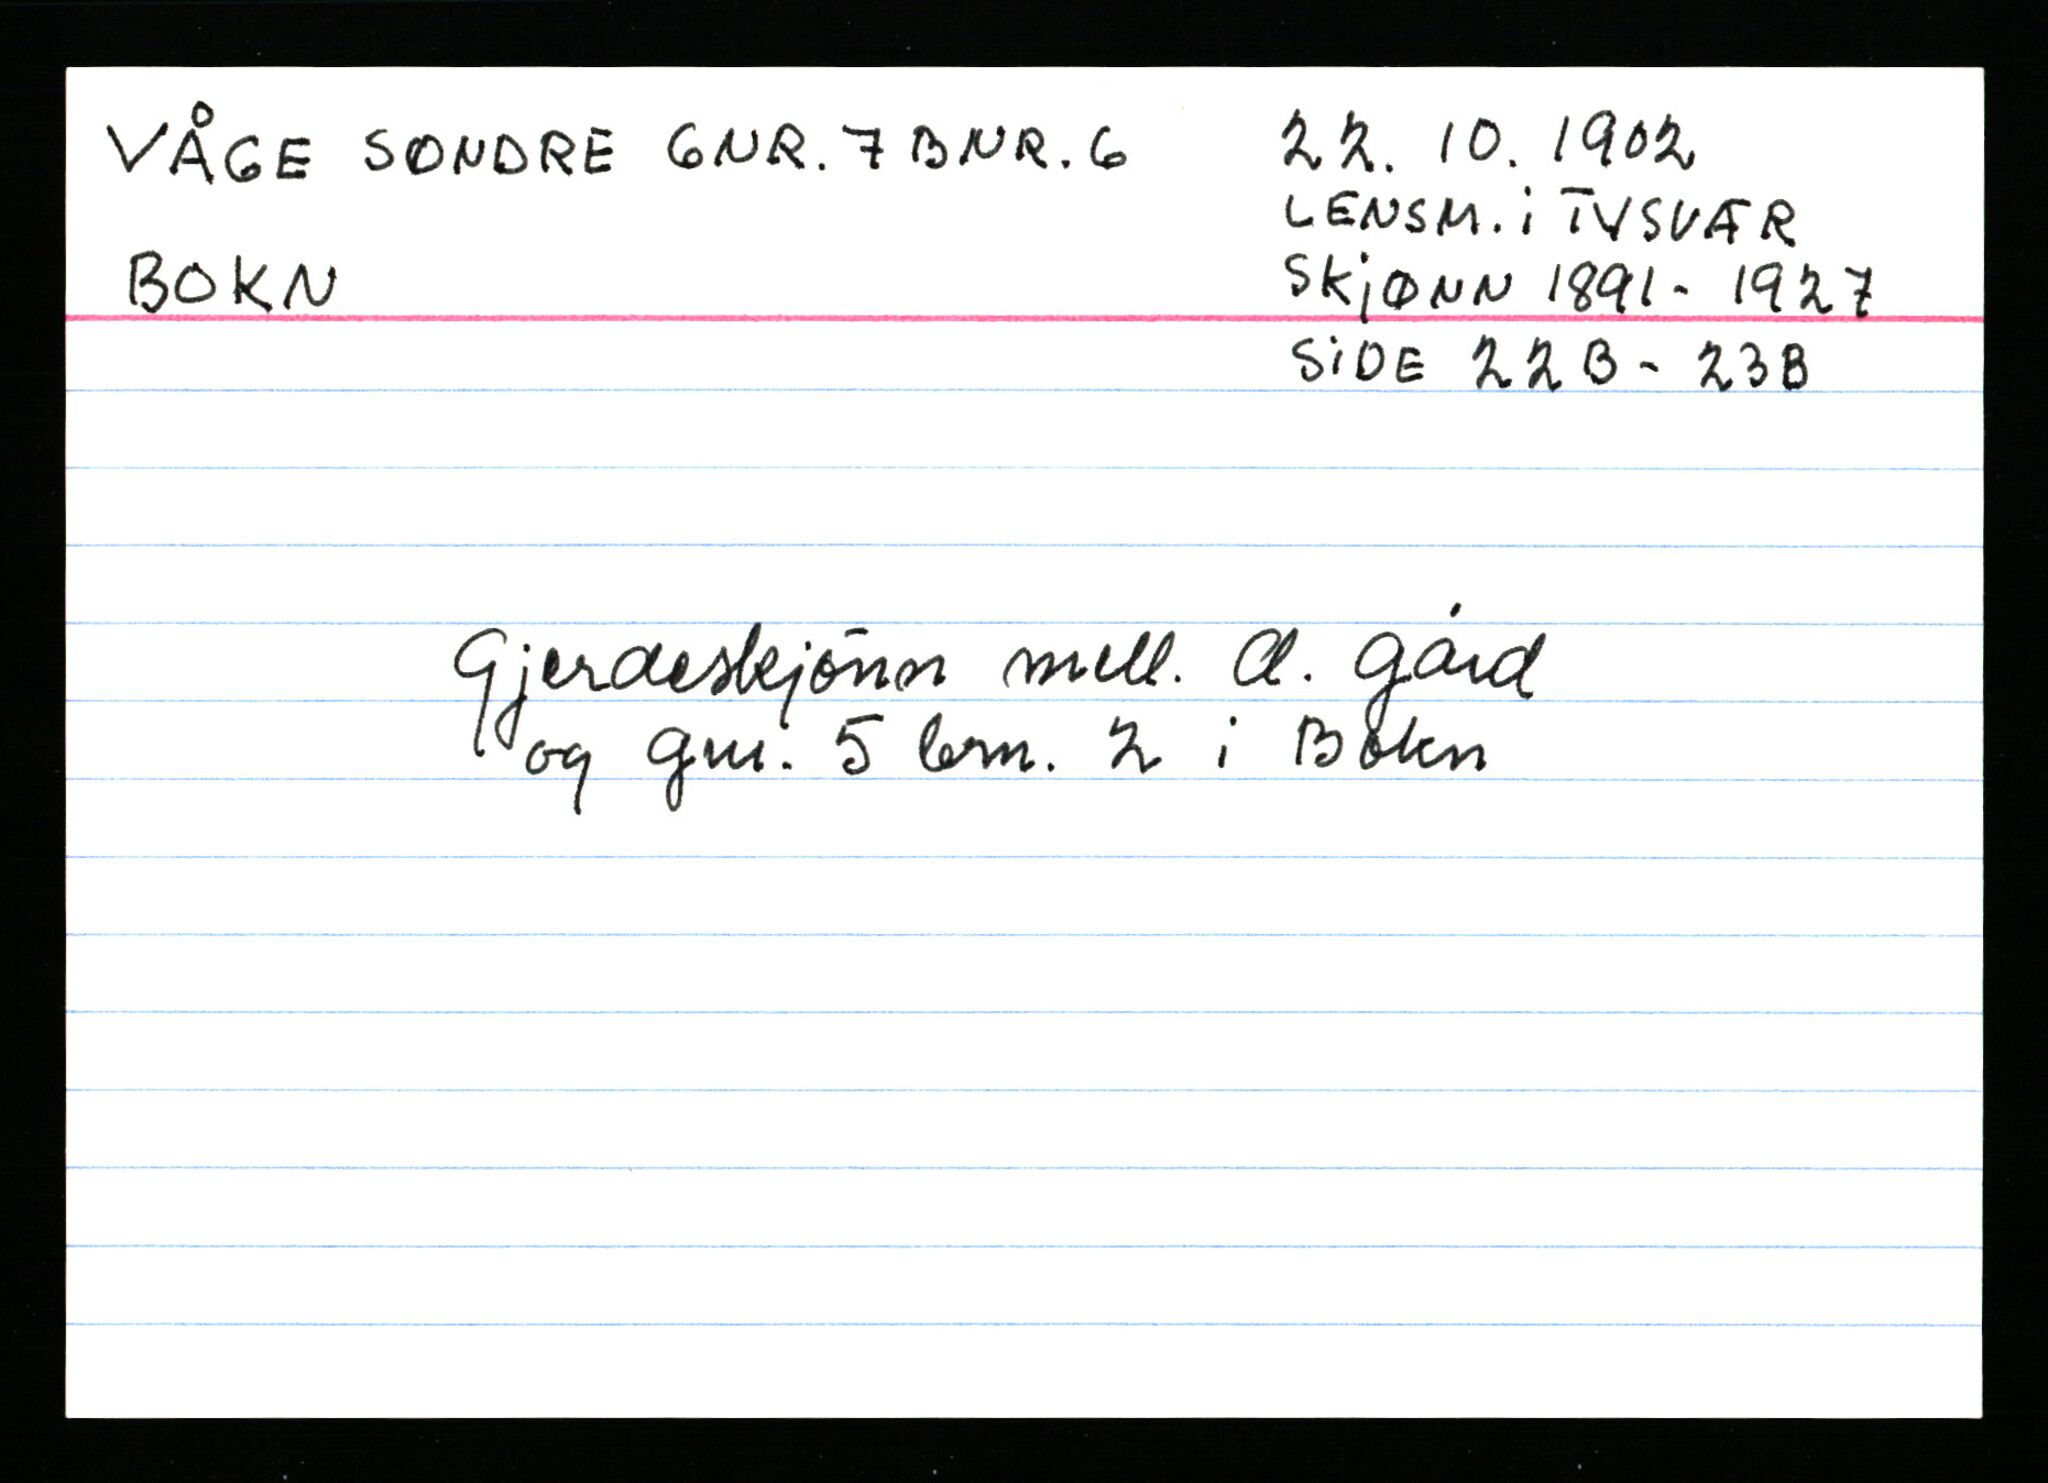 VÅGE SØNDRE GNR. 7 BNR. 6
BOKN
22. 10. 1902
LENSM. i TYSVÆR
SKJØNN 1891 - 1927
SIDE 22B - 23B
Gjerdeskjönn mell. d. gård
og gnr. 5 bnr. 2 i Bokn